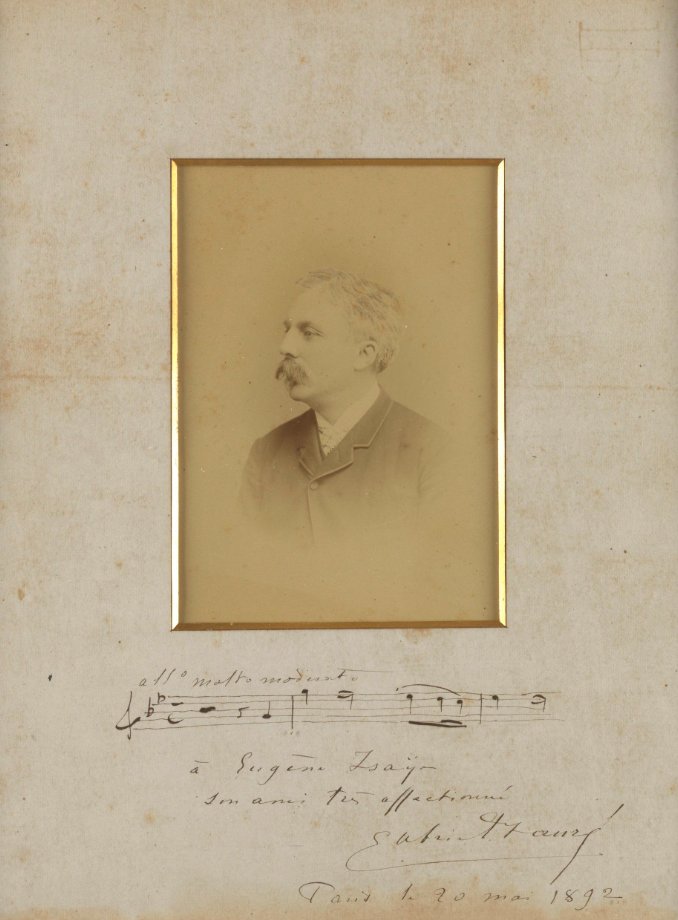 allo molto moderato
à Eugène Isaÿe
son ami très affectionné
Gabriel Fauré
Paris le 20 mai 1892